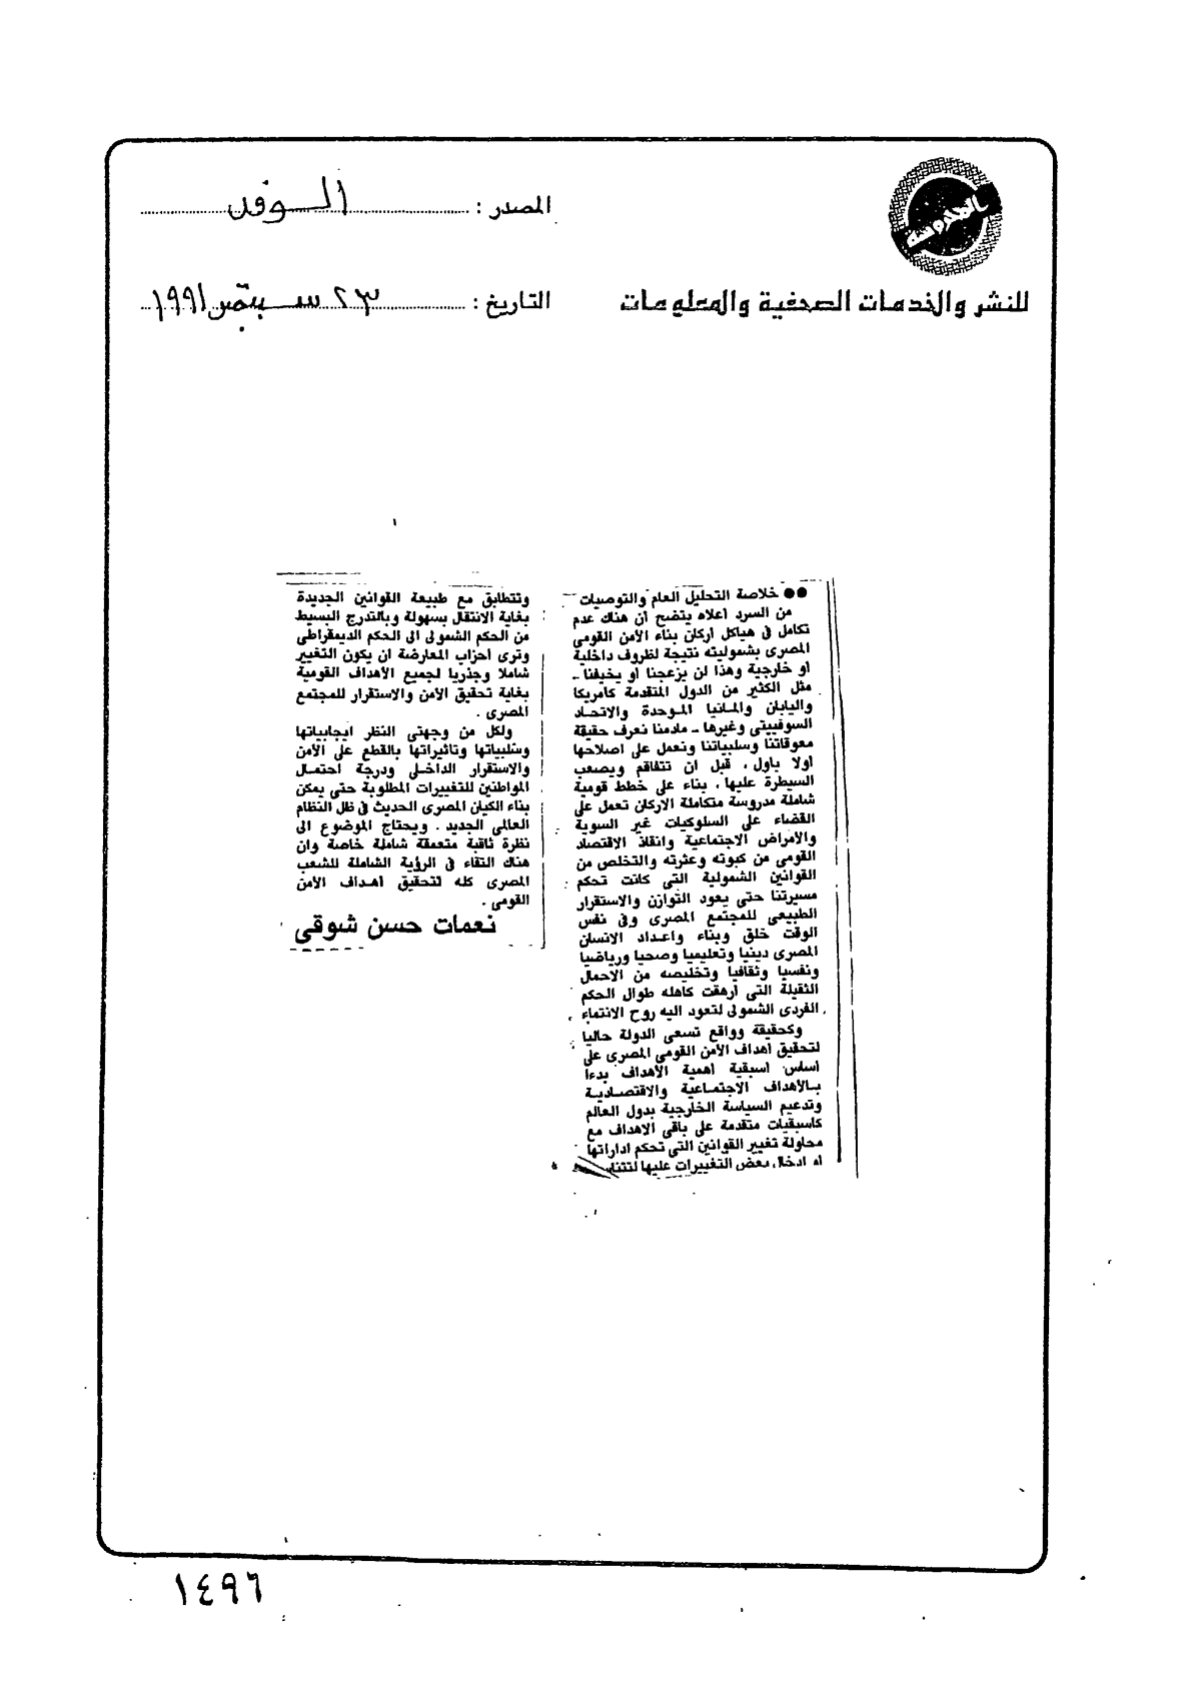 المصدر : الوفد
للنشر والخدمات الصحفية والمعلومات
التاريخ : ٢٣ سبتمبر ١٩٩١
●● خلاصة التحليل العام والتوصيات
من السرد اعلاه يتضح ان هناك عدم
تكامل فى هياكل اركان بناء الأمن القومى
المصرى بشموليته نتيجة لظروف داخلية
او خارجية وهذا لن يزعجنا او يخيفنا -
مثل الكثير من الدول المتقدمة كامريكا
واليابان والمانيا الموحدة والاتحاد
السوفييتى وغيرها - مادمنا نعرف حقيقة
معوقاتنا وسلبياتنا ونعمل على اصلاحها
اولا باول ، قبل ان تتفاقم ويصعب
السيطرة عليها ، بناء على خطط قومية
شاملة مدروسة متكاملة الاركان تعمل على
القضاء على السلوكيات غير السوية
والامراض الاجتماعية وانقاذ الاقتصاد
القومى من كبوته وعثرته والتخلص من
القوانين الشمولية التى كانت تحكم
مسيرتنا حتى يعود التوازن والاستقرار
الطبيعى للمجتمع المصرى وفى نفس
الوقت خلق وبناء واعداد الانسان
المصرى دينيا وتعليميا وصحيا ورياضيا
ونفسيا وثقافيا وتخليصه من الاحمال
الثقيلة التى أرهقت كاهله طوال الحكم
الفردى الشمولى لتعود اليه روح الانتماء .
وكحقيقة وواقع تسعى الدولة حاليا
لتحقيق اهداف الأمن القومى المصرى على
اساس اسبقية اهمية الأهداف بدءا
بالأهداف الاجتماعية والاقتصادية
وتدعيم السياسة الخارجية بدول العالم
كاسبقيات متقدمة على باقى الاهداف مع
محاولة تغيير القوانين التى تحكم اداراتها
او ادخال بعض التغييرات عليها
وتتطابق مع طبيعة القوانين الجديدة
بغاية الانتقال بسهولة وبالتدرج البسيط
من الحكم الشمولى الى الحكم الديمقراطى
وترى احزاب المعارضة ان يكون التغيير
شاملا وجذريا لجميع الأهداف القومية
بغاية تحقيق الأمن والاستقرار للمجتمع
المصرى .
ولكل من وجهتى النظر ايجابياتها
وسلبياتها وتاثيراتها بالقطع على الأمن
والاستقرار الداخلى ودرجة احتمال
المواطنين للتغييرات المطلوبة حتى يمكن
بناء الكيان المصرى الحديث فى ظل النظام
العالمى الجديد . ويحتاج الموضوع الى
نظرة ثاقبة متعمقة شاملة خاصة وان
هناك التقاء فى الرؤية الشاملة للشعب
المصرى كله لتحقيق اهداف الأمن
القومى .
نعمات حسن شوقى
١٤٩٦